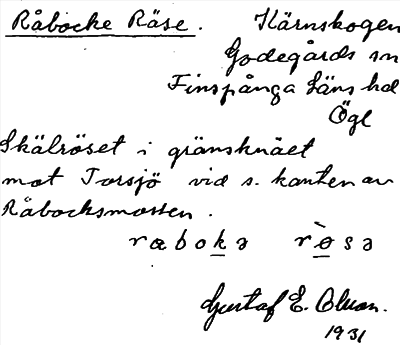 Råbocke Räse. Kärnskogen
Godegårds sn
Finspånga Läns hd
Ögl
Skälröset i gränsknäet
mot Torsjö vid s. kanten av
Råbocksmossen.
raboka rɵ̀sə
Gustaf E. Olson.
1931